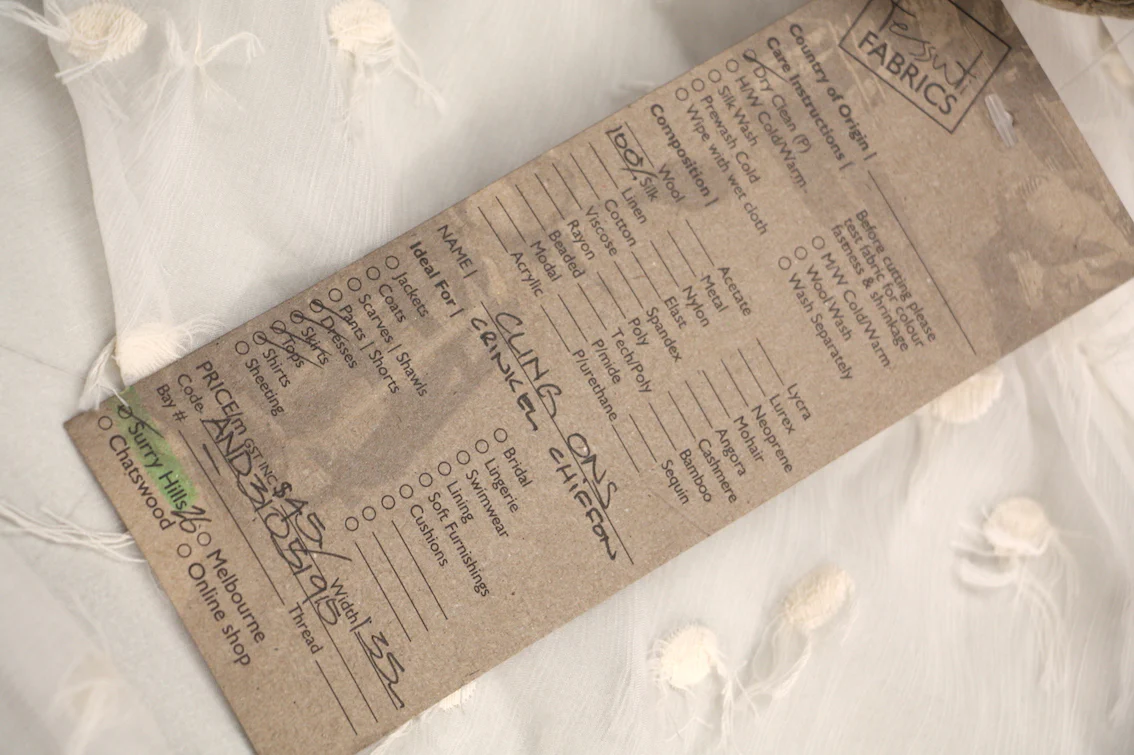 Tessuti
FABRICS
Country of Origin |
Care Instructions |
Dry Clean (P)
H/W Cold/Warm
Silk Wash
Prewash Cold
Wipe with wet cloth
Before cutting please
test fabric for colour
fastness & shrinkage
M/W Cold/Warm
Wool Wash
Wash Separately
Composition |
Wool
100% Silk
Linen
Cotton
Viscose
Rayon
Beaded
Modal
Acrylic
Acetate
Metal
Nylon
Elast
Spandex
Poly
Tech/Poly
P/mide
P/urethane
Lycra
Lurex
Neoprene
Mohair
Angora
Cashmere
Bamboo
Sequin
NAME | CLING ONS
CRINKLE CHIFFON
Ideal For |
Jackets
Coats
Scarves | Shawls
Pants | Shorts
Dresses
Skirts
Tops
Shirts
Sheeting
Bridal
Lingerie
Swimwear
Lining
Soft Furnishings
Cushions
PRICE/m GST INC $45/ Width | 135
Code
Bay # Thread
Surry Hills
Chatswood
Melbourne
Online shop